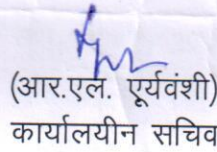 (आर.एल. एूर्यवंशी)
कार्यालयीन सचिव